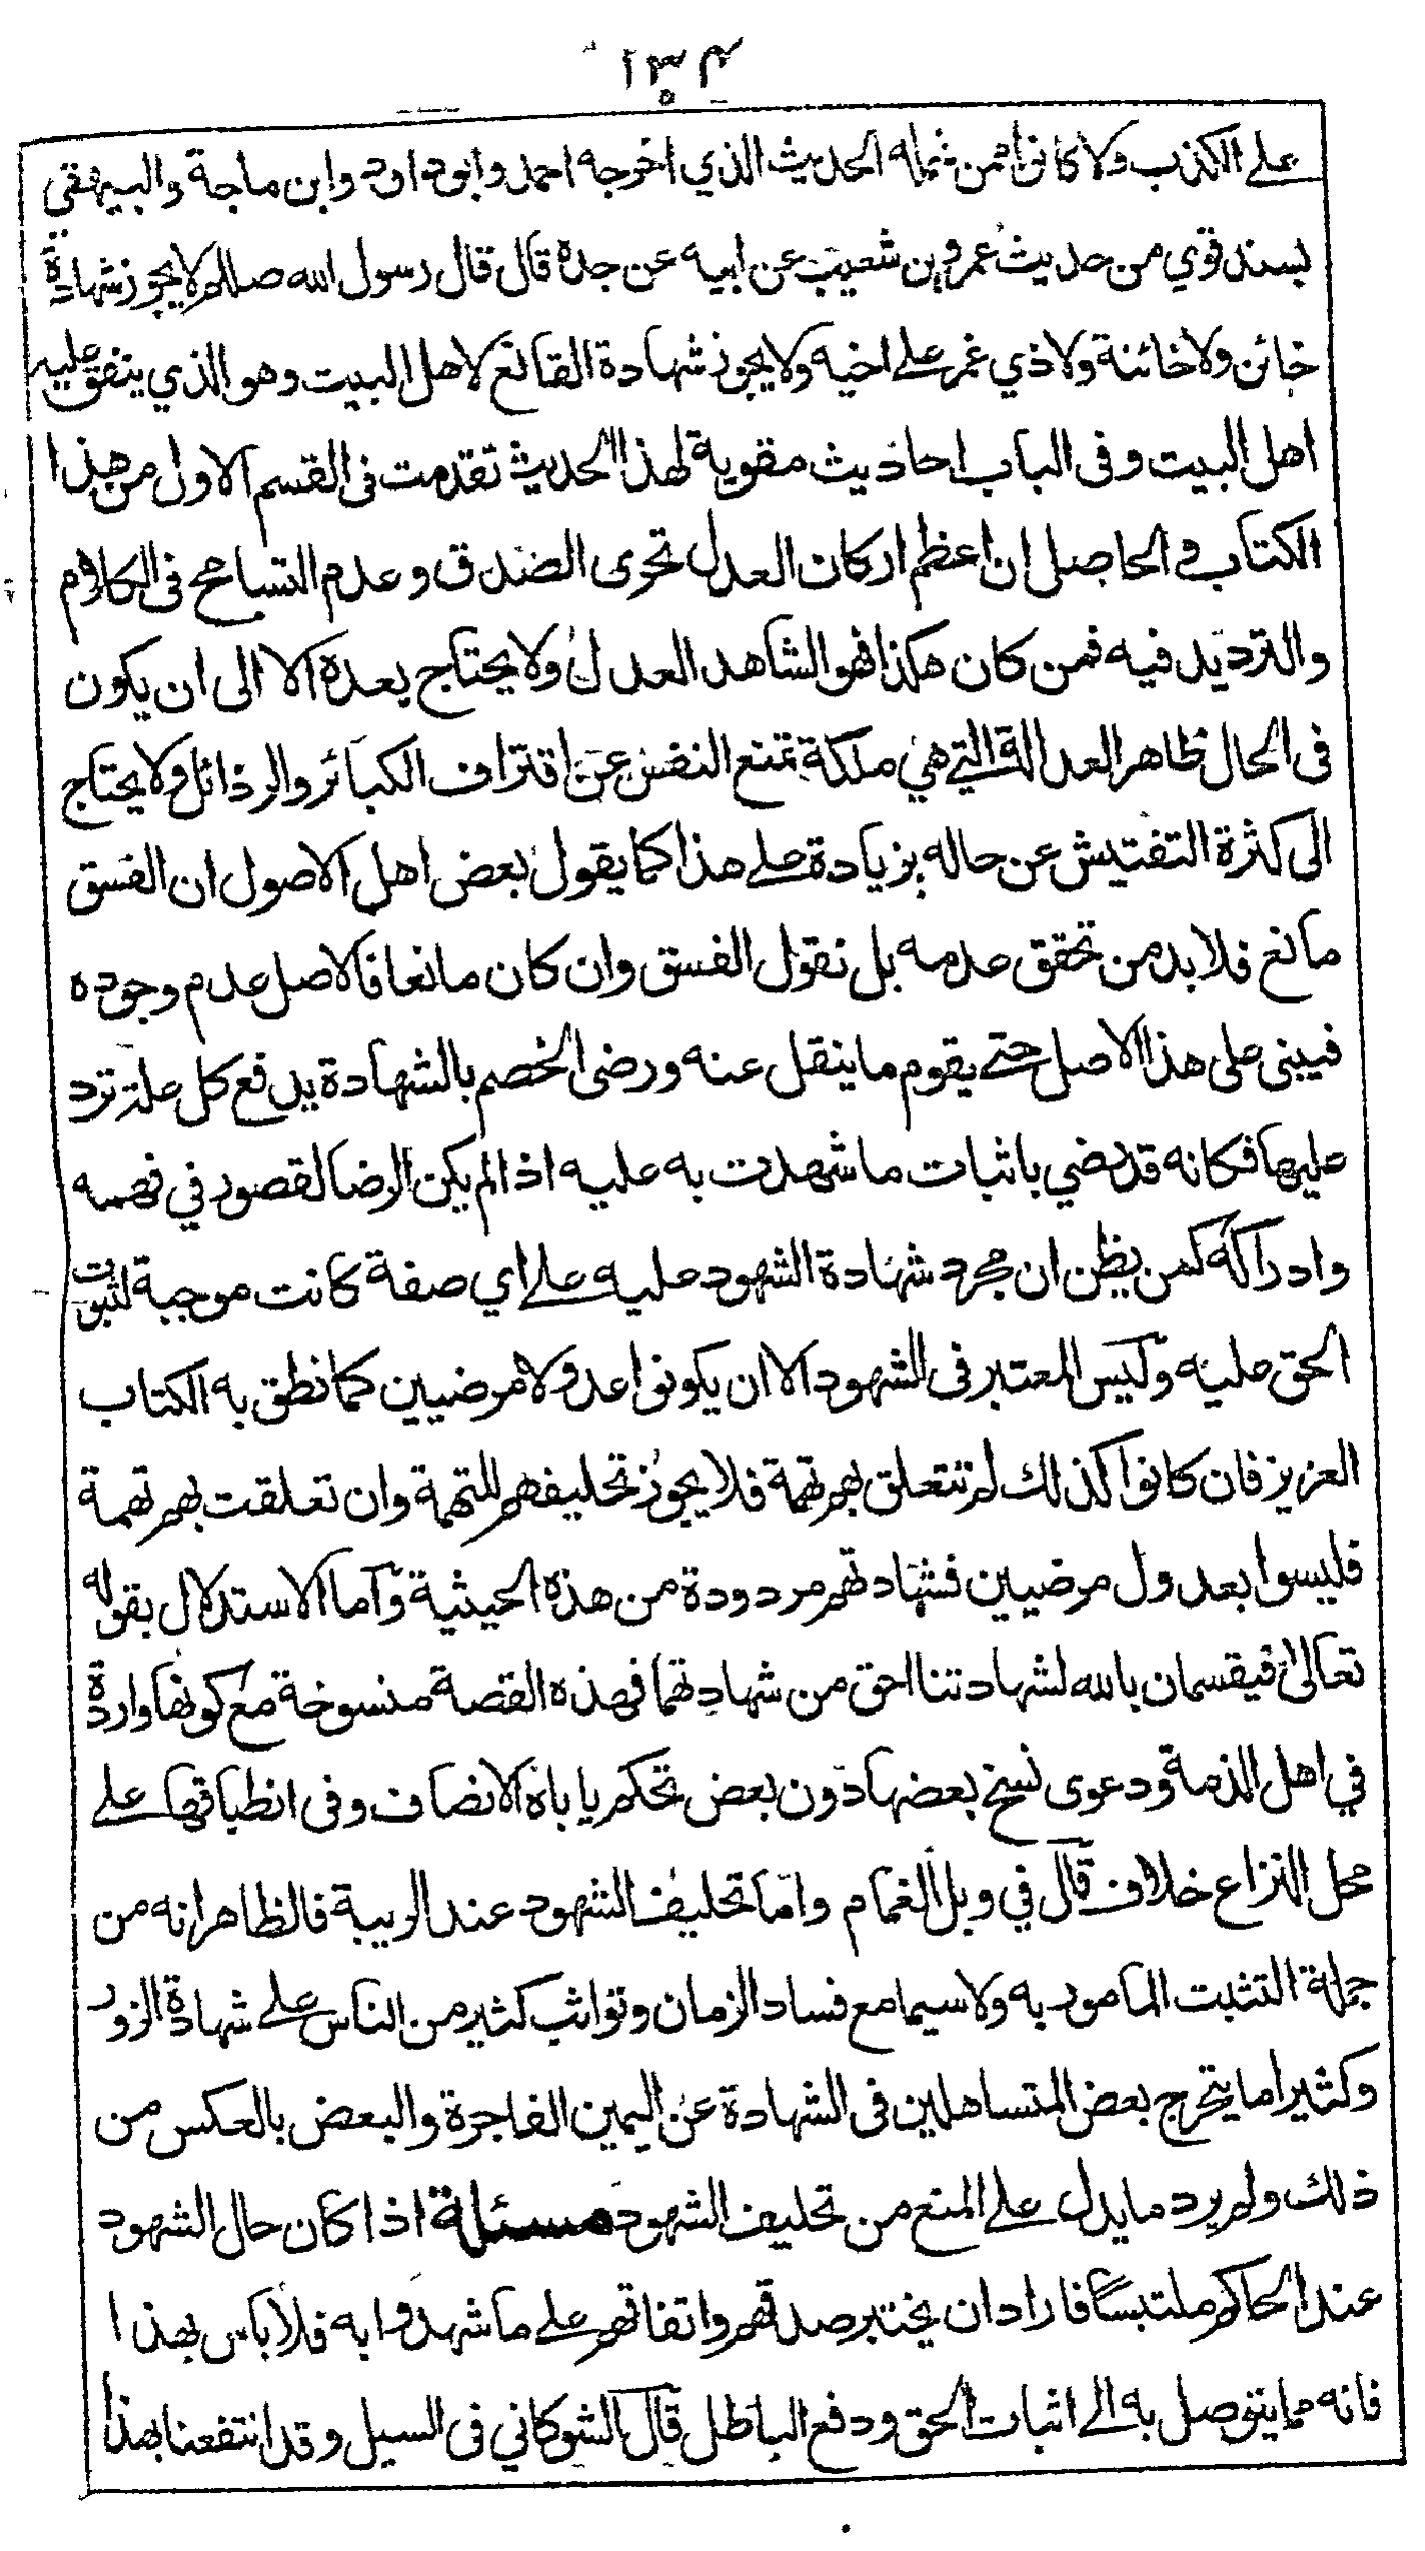 ١٣٤
على الكذب ولا كانوا ممن شمله الحديث الذي اخرجه احمد وابوداود وابن ماجة والبيهقي
بسند قوي من حديث عمرو بن شعيب عن ابيه عن جده قال قال رسول الله صللم لا يجوز شهادة
خائن ولا خائنة ولا ذي غمر على اخيه ولا يجوز شهادة القانع لاهل البيت وهو الذي ينفق عليه
اهل البيت وفى الباب احاديث مقوية لهذا الحديث تقدمت فى القسم الاول من هذا
الكتاب والحاصل ان اعظم اركان العدل تحرى الصدق وعدم التسامح فى الكلام
والترديد فيه فمن كان هكذا فهو الشاهد العدل ولا يحتاج بعده الا الى ان يكون
فى الحال ظاهر العدالة التي هي ملكة تمنع النفس عن اقتراف الكبائر والرذائل ولا يحتاج
الى كثرة التفتيش عن حاله بزيادة على هذا كما يقول بعض اهل الاصول ان الفسق
مانع فلا بد من تحقق عدمه بل نقول الفسق وان كان مانعا فالاصل عدم وجوده
فيبنى على هذا الاصل حتى يقوم ما ينقل عنه ورضى الخصم بالشهادة يدفع كل علة ترد
عليها فكانه قد رضي باثبات ما شهدت به عليه اذا لم يكن الرضا لقصور في فهمه
وادراكه كمن يظن ان مجرد شهادة الشهود عليه على اي صفة كانت موجبة لثبوت
الحق عليه وليس المعتبر فى الشهود الا ان يكونوا عدولا مرضيين كما نطق به الكتاب
العزيز فان كانوا كذلك لم تتعلق بهم تهمة فلا يجوز تحليفهم للتهمة وان تعلقت بهم تهمة
فليسوا بعدول مرضيين فشهادتهم مردودة من هذه الحيثية واما الاستدلال بقوله
تعالى فيقسمان بالله لشهادتنا احق من شهادتهما فهذه القصة منسوخة مع كونها واردة
في اهل الذمة ودعوى نسخ بعضها دون بعض تحكم ياباه الانصاف وفى انطباقها على
محل النزاع خلاف قال في وبل الغمام واما تحليف الشهود عند الريبة فالظاهر انه من
جملة التثبت المامور به ولا سيما مع فساد الزمان وتواثب كثير من الناس على شهادة الزور
وكثيرا ما يتحرج بعض المتساهلين فى الشهادة عن اليمين الفاجرة والبعض بالعكس من
ذلك ولم يرد ما يدل على المنع من تحليف الشهود مسئلة اذا كان حال الشهود
عند الحاكم ملتبسا فاراد ان يختبر صدقهم واتفاقهم على ما شهدوا به فلا باس بهذا
فانه مما يتوصل به الى اثبات الحق ودفع الباطل قال الشوكاني فى السيل وقد انتفعنا بهذا